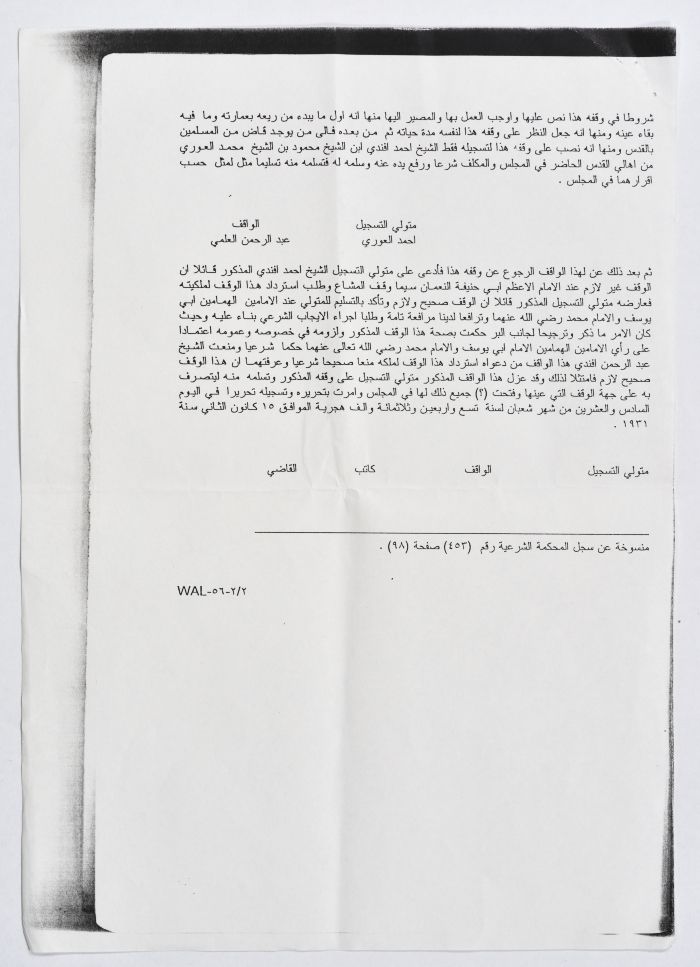 شروطا في وقفه هذا نص عليها واوجب العمل بها والمصير اليها منها انه اول ما يبدء من ريعه بعمارته وما فيه
بقاء عينه ومنها انه جعل النظر على وقفه هذا لنفسه مدة حياته ثم من بعده فالى من يوجد قاض من المسلمين
بالقدس ومنها انه نصب على وقفه هذا لتسجيله فقط الشيخ احمد افندي ابن الشيخ محمود بن الشيخ محمد العوري
من اهالي القدس الحاضر في المجلس والمكلف شرعا ورفع يده عنه وسلمه له فتسلمه منه تسليما مثل لمثل حسب
اقرارهما في المجلس .
متولي التسجيل الواقف
احمد العوري عبد الرحمن العلمي
ثم بعد ذلك عن لهذا الواقف الرجوع عن وقفه هذا فأدعى على متولي التسجيل الشيخ احمد افندي المذكور قائلا ان
الوقف غير لازم عند الامام الاعظم أبي حنيفة النعمان سيما وقف المشاع وطلب استرداد هذا الوقف لملكيته
فعارضه متولي التسجيل المذكور قائلا ان الوقف صحيح ولازم وتأكد بالتسليم للمتولي عند الامامين الهمامين ابي
يوسف والامام محمد رضي الله عنهما وترافعا لدينا مرافعة تامة وطلبا اجراء الايجاب الشرعي بناء عليه وحيث
كان الامر ما ذكر وترجيحا لجانب البر حكمت بصحة هذا الوقف المذكور ولزومه في خصوصه وعمومه اعتمادا
على رأي الامامين الهمامين الامام ابي يوسف والامام محمد رضي الله تعالى عنهما حكما شرعيا ومنعت الشيخ
عبد الرحمن افندي هذا الواقف من دعواه استرداد هذا الوقف لملكه منعا صحيحا شرعيا وعرفتهما ان هذا الوقف
صحيح لازم فامتثلا لذلك وقد عزل هذا الواقف المذكور متولي التسجيل على وقفه المذكور وتسلمه منه ليتصرف
به على جهة الوقف التي عينها وفتحت (؟) جميع ذلك لها في المجلس وامرت بتحريره وتسجيله تحريرا في اليوم
السادس والعشرين من شهر شعبان لسنة تسع واربعين وثلاثمائة والف هجرية الموافق ١٥ كانون الثاني سنة
١٩٣١ .
متولي التسجيل الواقف كاتب القاضي
منسوخة عن سجل المحكمة الشرعية رقم (٤٥٣) صفحة (٩٨) .
WAL-٥٦-٢/٢